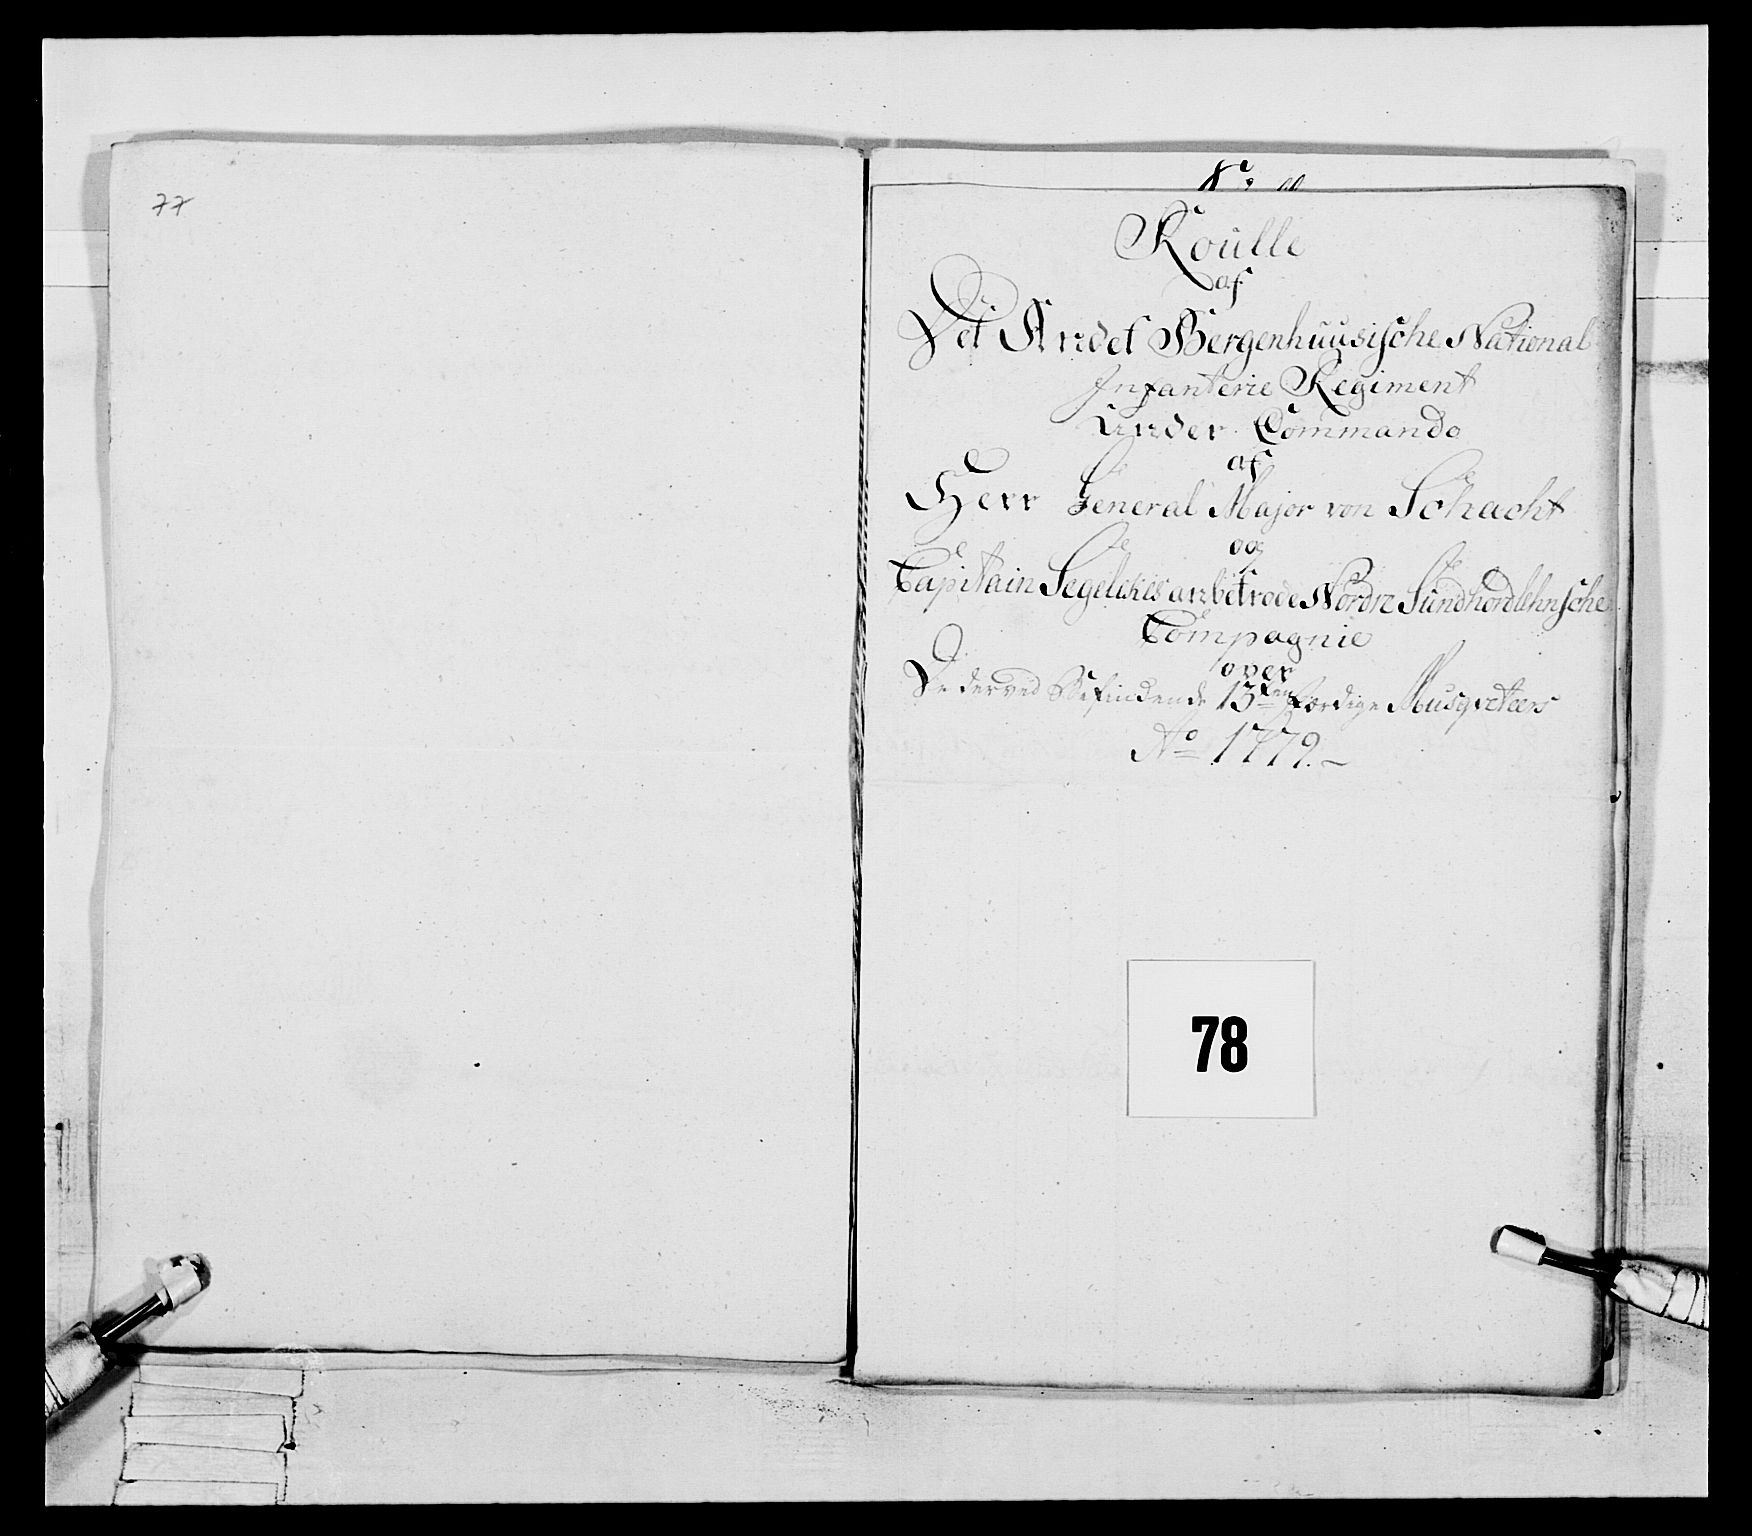 77
Roulle
af
Det Andet Bergenhuusische National
Infanterie Regiment
Under Commando
af
Herr General Major von Schacht
og
Capitain Segelckes anbetroede Nordre Sundhordlehnsche
Compagnie
over
De derved Befindende 13ten færdige Musqveteers
Ao 1779.
78